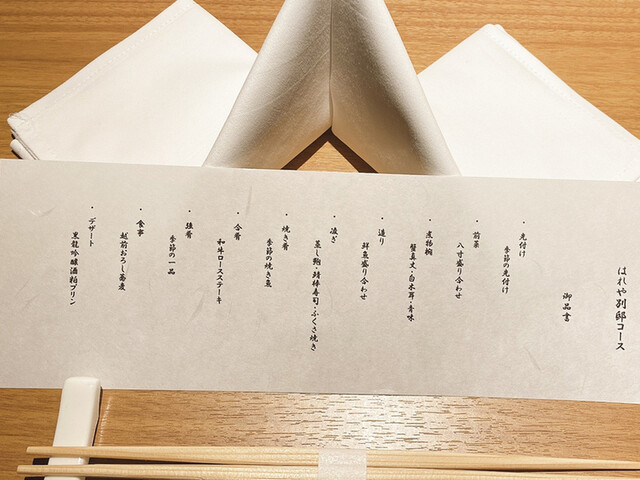 はれや別邸コース
御品書
・先付け
季節の先付け
・前菜
八寸盛り合わせ
・煮物椀
蟹真丈・白木耳・青味
・造り
鮮魚盛り合わせ
・凌ぎ
蒸し鮑・鯖棒寿司・ふくさ焼き
・焼き肴
季節の焼き魚
・合肴
和牛ロースステーキ
・強肴
季節の一品
・食事
越前おろし蕎麦
・デザート
黒龍吟醸酒粕プリン